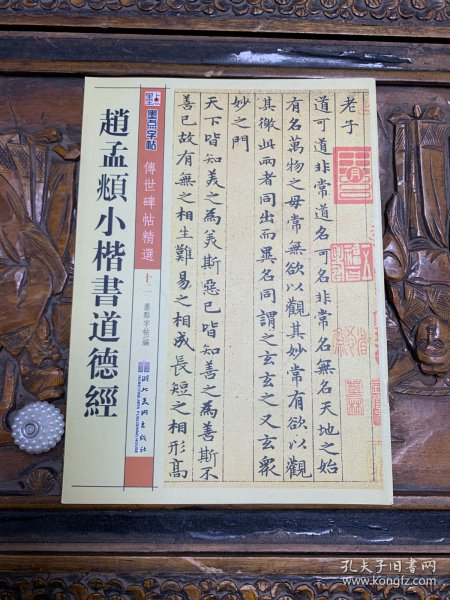 墨点字帖
傳世碑帖精選
十二
墨點字帖 編
趙孟頫小楷書道德經
湖北美術出版社
老子
道可道非常道名可名非常名無名天地之始
有名萬物之母常無欲以觀其妙常有欲以觀
其徼此兩者同出而異名同謂之玄玄之又玄衆
妙之門
天下皆知美之為美斯惡已皆知善之為善斯不
善已故有無之相生難易之相成長短之相形高
孔夫子旧书网
www.kongfz.com